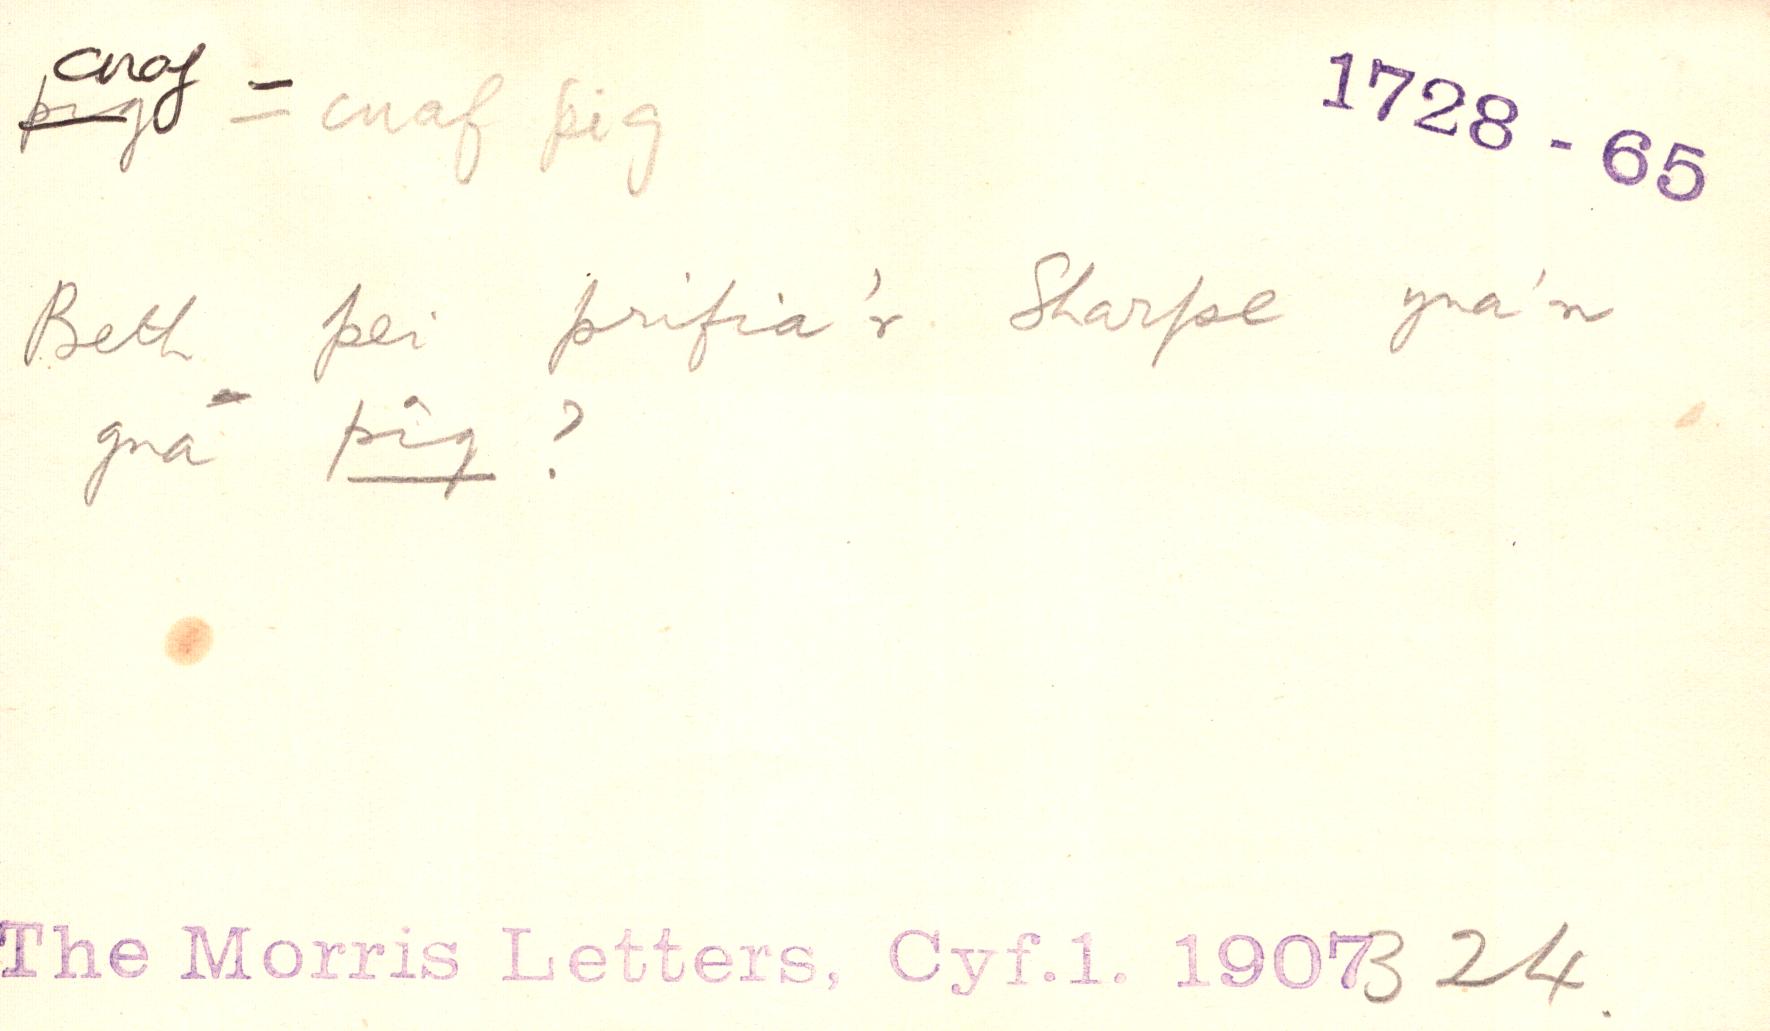 cnaf
pig = cnaf pig
1728 - 65
Beth pei prifia'r Sharpe yna'n
gna pîg ?
The Morris Letters, Cyf.1. 1907 324.